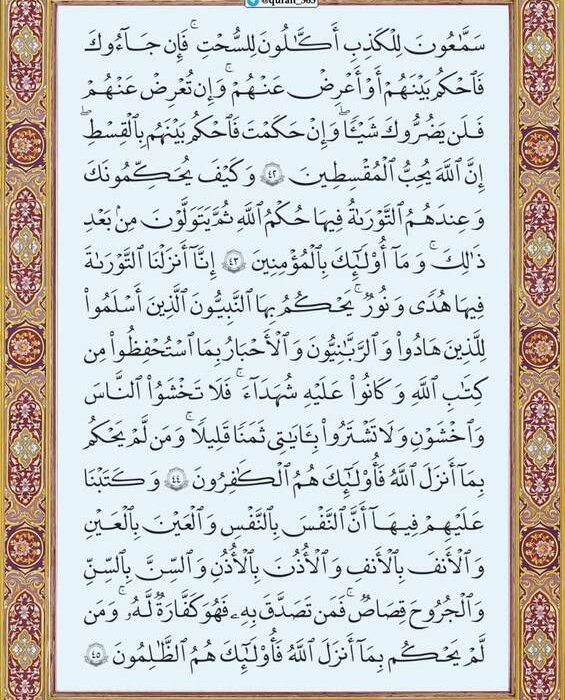 @quran_365
سَمَّٰعُونَ لِلْكَذِبِ أَكَّٰلُونَ لِلسُّحْتِ ۚ فَإِن جَآءُوكَ
فَٱحْكُم بَيْنَهُمْ أَوْ أَعْرِضْ عَنْهُمْ ۖ وَإِن تُعْرِضْ عَنْهُمْ
فَلَن يَضُرُّوكَ شَيْـًٔا ۖ وَإِنْ حَكَمْتَ فَٱحْكُم بَيْنَهُم بِٱلْقِسْطِ ۚ
إِنَّ ٱللَّهَ يُحِبُّ ٱلْمُقْسِطِينَ ٤٢ وَكَيْفَ يُحَكِّمُونَكَ
وَعِندَهُمُ ٱلتَّوْرَىٰةُ فِيهَا حُكْمُ ٱللَّهِ ثُمَّ يَتَوَلَّوْنَ مِنۢ بَعْدِ
ذَٰلِكَ ۚ وَمَآ أُو۟لَٰٓئِكَ بِٱلْمُؤْمِنِينَ ٤٣ إِنَّآ أَنزَلْنَا ٱلتَّوْرَىٰةَ
فِيهَا هُدًى وَنُورٌ ۚ يَحْكُمُ بِهَا ٱلنَّبِيُّونَ ٱلَّذِينَ أَسْلَمُوا۟
لِلَّذِينَ هَادُوا۟ وَٱلرَّبَّٰنِيُّونَ وَٱلْأَحْبَارُ بِمَا ٱسْتُحْفِظُوا۟ مِن
كِتَٰبِ ٱللَّهِ وَكَانُوا۟ عَلَيْهِ شُهَدَآءَ ۚ فَلَا تَخْشَوُا۟ ٱلنَّاسَ
وَٱخْشَوْنِ وَلَا تَشْتَرُوا۟ بِـَٔايَٰتِى ثَمَنًا قَلِيلًا ۚ وَمَن لَّمْ يَحْكُم
بِمَآ أَنزَلَ ٱللَّهُ فَأُو۟لَٰٓئِكَ هُمُ ٱلْكَٰفِرُونَ ٤٤ وَكَتَبْنَا
عَلَيْهِمْ فِيهَآ أَنَّ ٱلنَّفْسَ بِٱلنَّفْسِ وَٱلْعَيْنَ بِٱلْعَيْنِ
وَٱلْأَنفَ بِٱلْأَنفِ وَٱلْأُذُنَ بِٱلْأُذُنِ وَٱلسِّنَّ بِٱلسِّنِّ
وَٱلْجُرُوحَ قِصَاصٌ ۚ فَمَن تَصَدَّقَ بِهِۦ فَهُوَ كَفَّارَةٌ لَّهُۥ ۚ وَمَن
لَّمْ يَحْكُم بِمَآ أَنزَلَ ٱللَّهُ فَأُو۟لَٰٓئِكَ هُمُ ٱلظَّٰلِمُونَ ٤٥